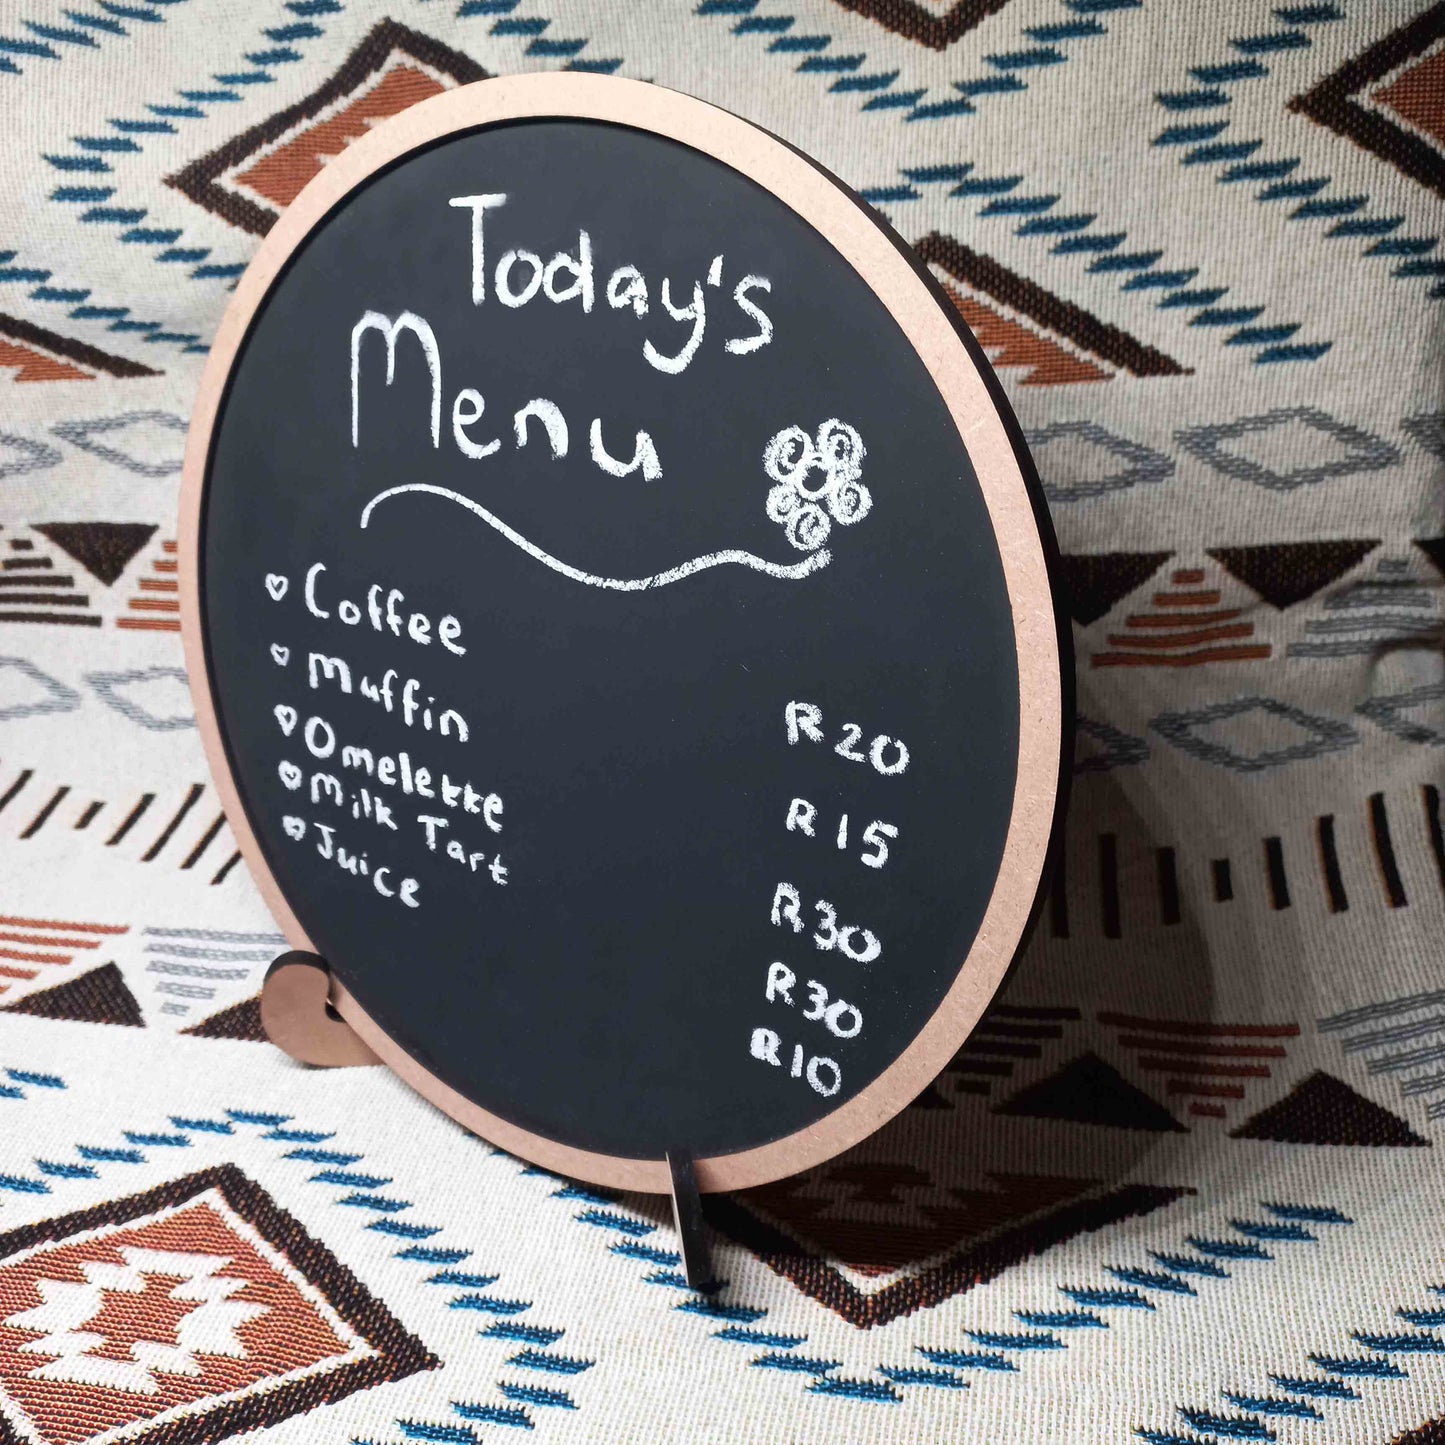 Today's
Menu
Coffee R20
Muffin R15
Omelette R30
Milk Tart R30
Juice R10